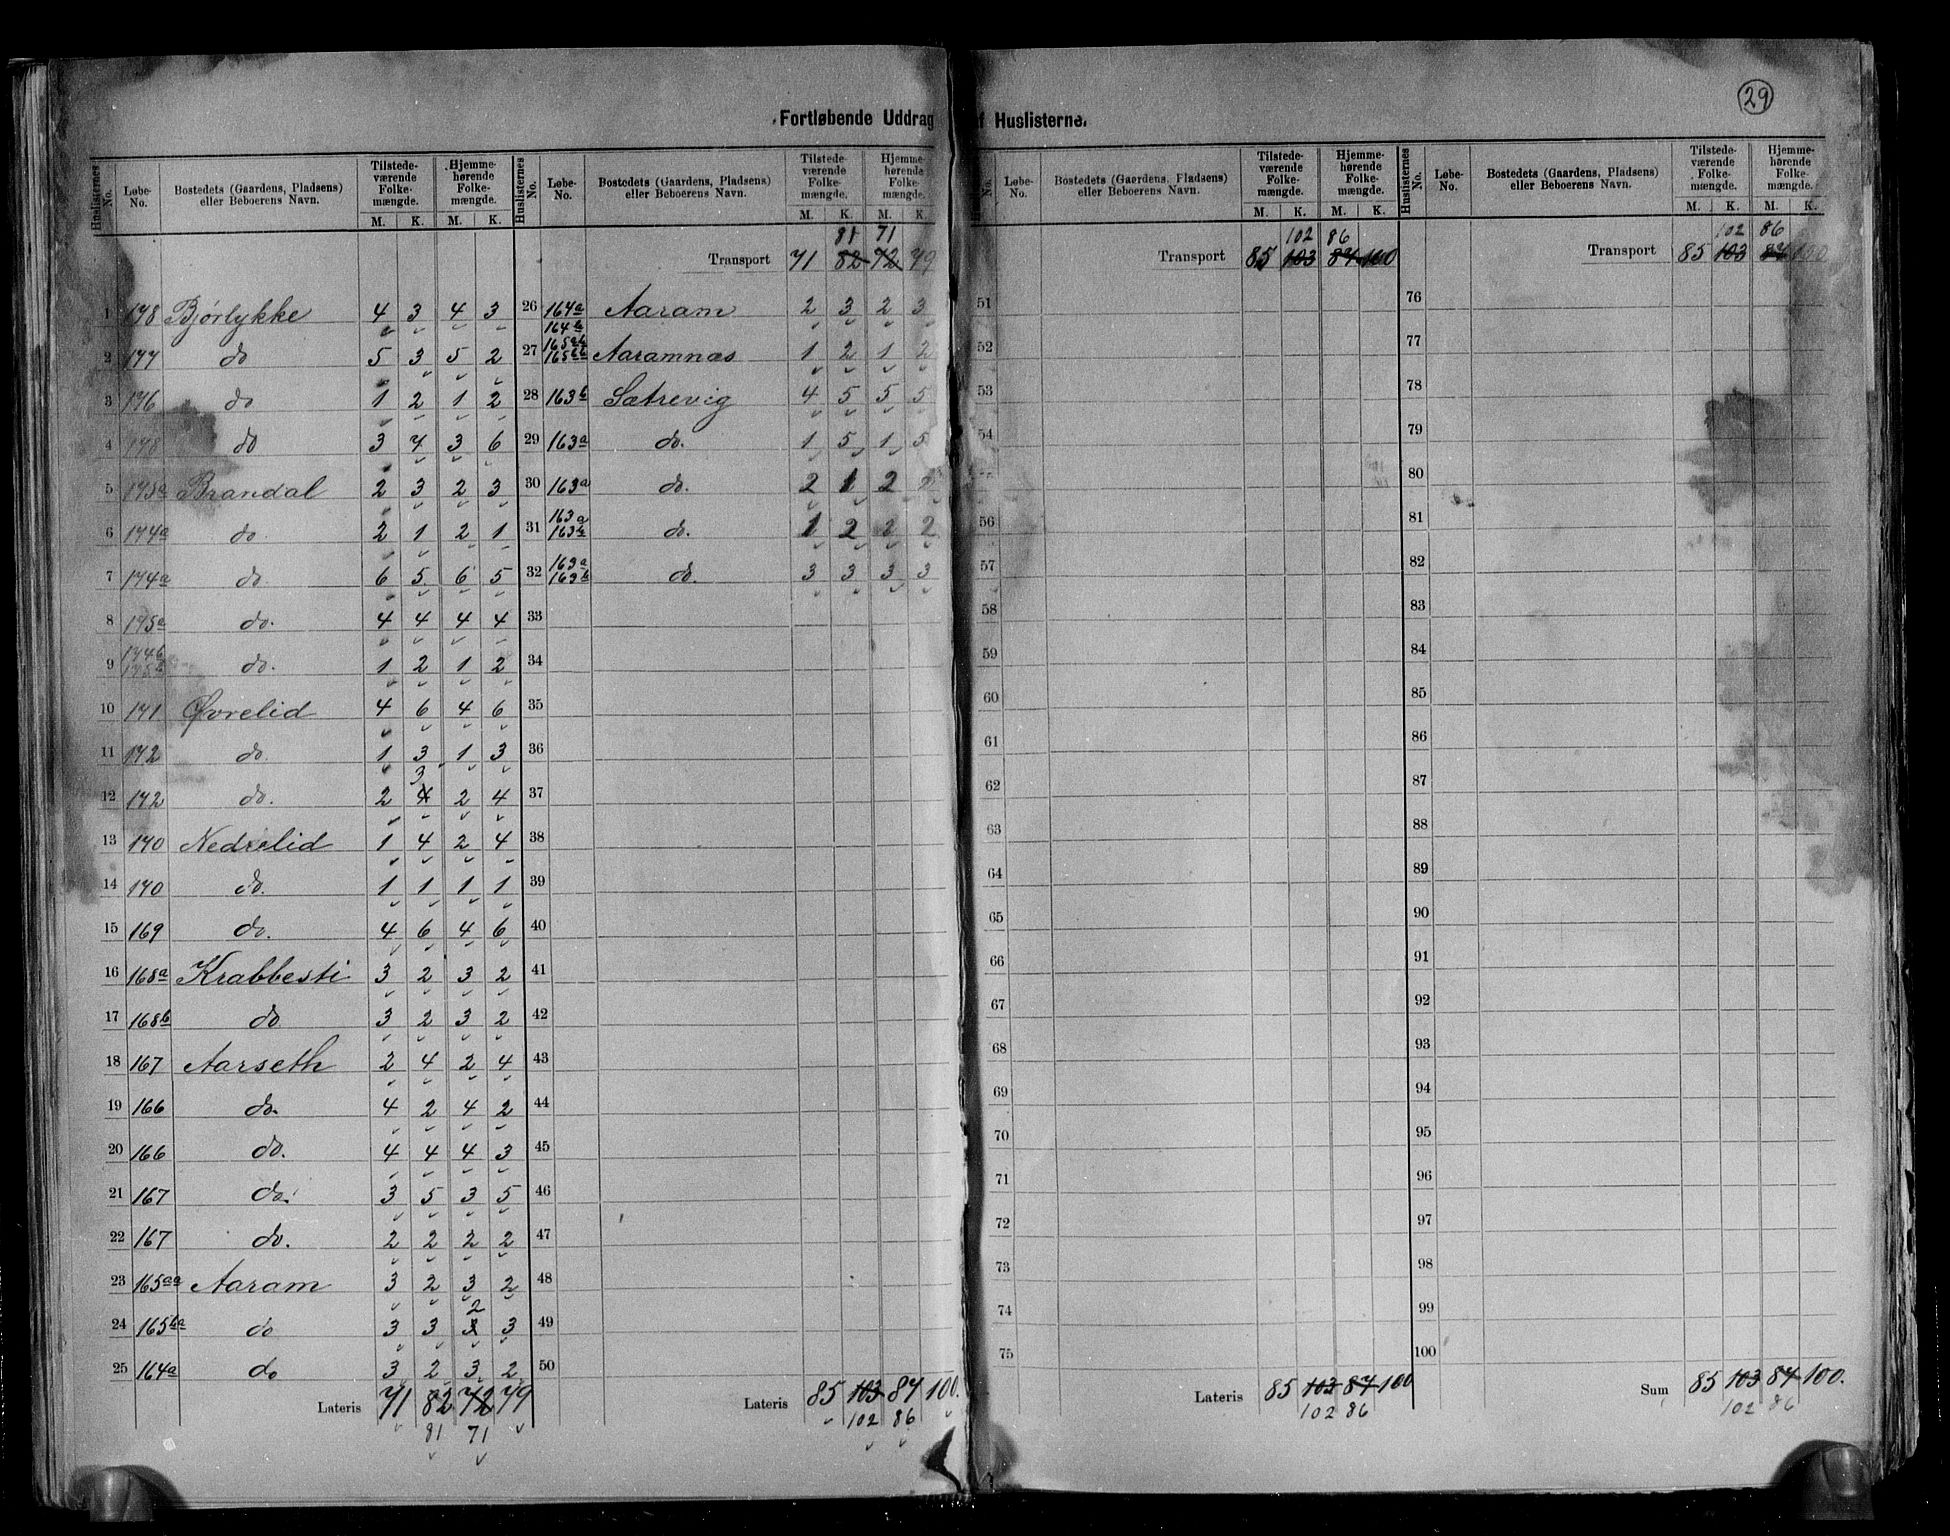 29
Fortløbende Uddrag af Huslisterne.
Huslisternes No. | Løbe-No. | Bostedets (Gaardens, Pladsen) eller Beboerens Navn. | Tilstedeværende Folkemængde. M. K. | Hjemmehørende Folkemængde. M. K.
1 178 Bjørlykke 4 3 4 3
2 177 do 5 3 5 2
3 176 do 1 2 1 2
4 178 do 3 7 3 6
5 175a Brandal 2 3 2 3
6 174a do 2 1 2 1
7 174a do. 6 5 6 5
8 175a do. 4 4 4 4
9 174b 175b do. 1 2 1 2
10 171 Øvrelid 4 6 4 6
11 172 do. 1 3 1 3
12 172 do. 2 4 3 2 4
13 170 Nedrelid 1 4 2 4
14 170 do. 1 1 1 1
15 169 do. 4 6 4 6
16 168a Krabbesti 3 2 3 2
17 168b do 3 2 3 2
18 167 Aarseth 2 4 2 4
19 166 do. 4 2 4 2
20 166 do. 4 4 4 3
21 167 do. 3 5 3 5
22 167 do. 2 2 2 2
23 165aa Aaram 3 2 3 2
24 165ba do 3 3 3 2 3
25 164a do 3 2 3 2
Lateris 71 82 72 79
81 71
Huslisternes No. | Løbe-No. | Bostedets (Gaardens, Pladsen) eller Beboerens Navn. | Tilstedeværende Folkemængde. M. K. | Hjemmehørende Folkemængde. M. K.
81 71
Transport 71 82 72 79
26 164a 164b Aaram 2 3 2 3
27 165ab 165bb Aaramnæs 1 2 1 2
28 163b Sætrevig 4 5 5 5
29 163a do. 1 5 1 5
30 163a do. 2 1 2
31 163a 163b do. 1 2 2 2
32 163a 163b do. 3 3 3 3
33
34
35
36
37
38
39
40
41
42
43
44
45
46
47
48
49
50
Lateris 85 103 87 100.
102 86
No. | Løbe-No. | Bostedets (Gaardens, Pladsen) eller Beboerens Navn. | Tilstedeværende Folkemængde. M. K. | Hjemmehørende Folkemængde. M. K.
102 86
Transport 85 103 87 100
51
52
53
54
56
57
58
59
60
61
62
63
64
65
66
67
68
69
70
71
72
73
74
75
Lateris 85 103 87 100
102 86
Huslisternes No. | Løbe-No. | Bostedets (Gaardens, Pladsen) eller Beboerens Navn. | Tilstedeværende Folkemængde. M. K. | Hjemmehørende Folkemængde. M. K.
102 86
Transport 85 103 87 100
76
77
78
79
80
81
82
83
84
85
86
87
88
89
90
91
92
93
94
95
96
97
98
99
100
Sum 85 103 87 100.
102 86